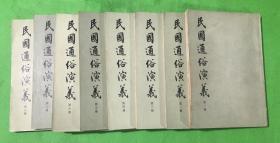 民國通俗演義
民國通俗演義
民國通俗演義
民國通俗演義
民國通俗演義
民國通俗演義
民國通俗演義
民國通俗演義